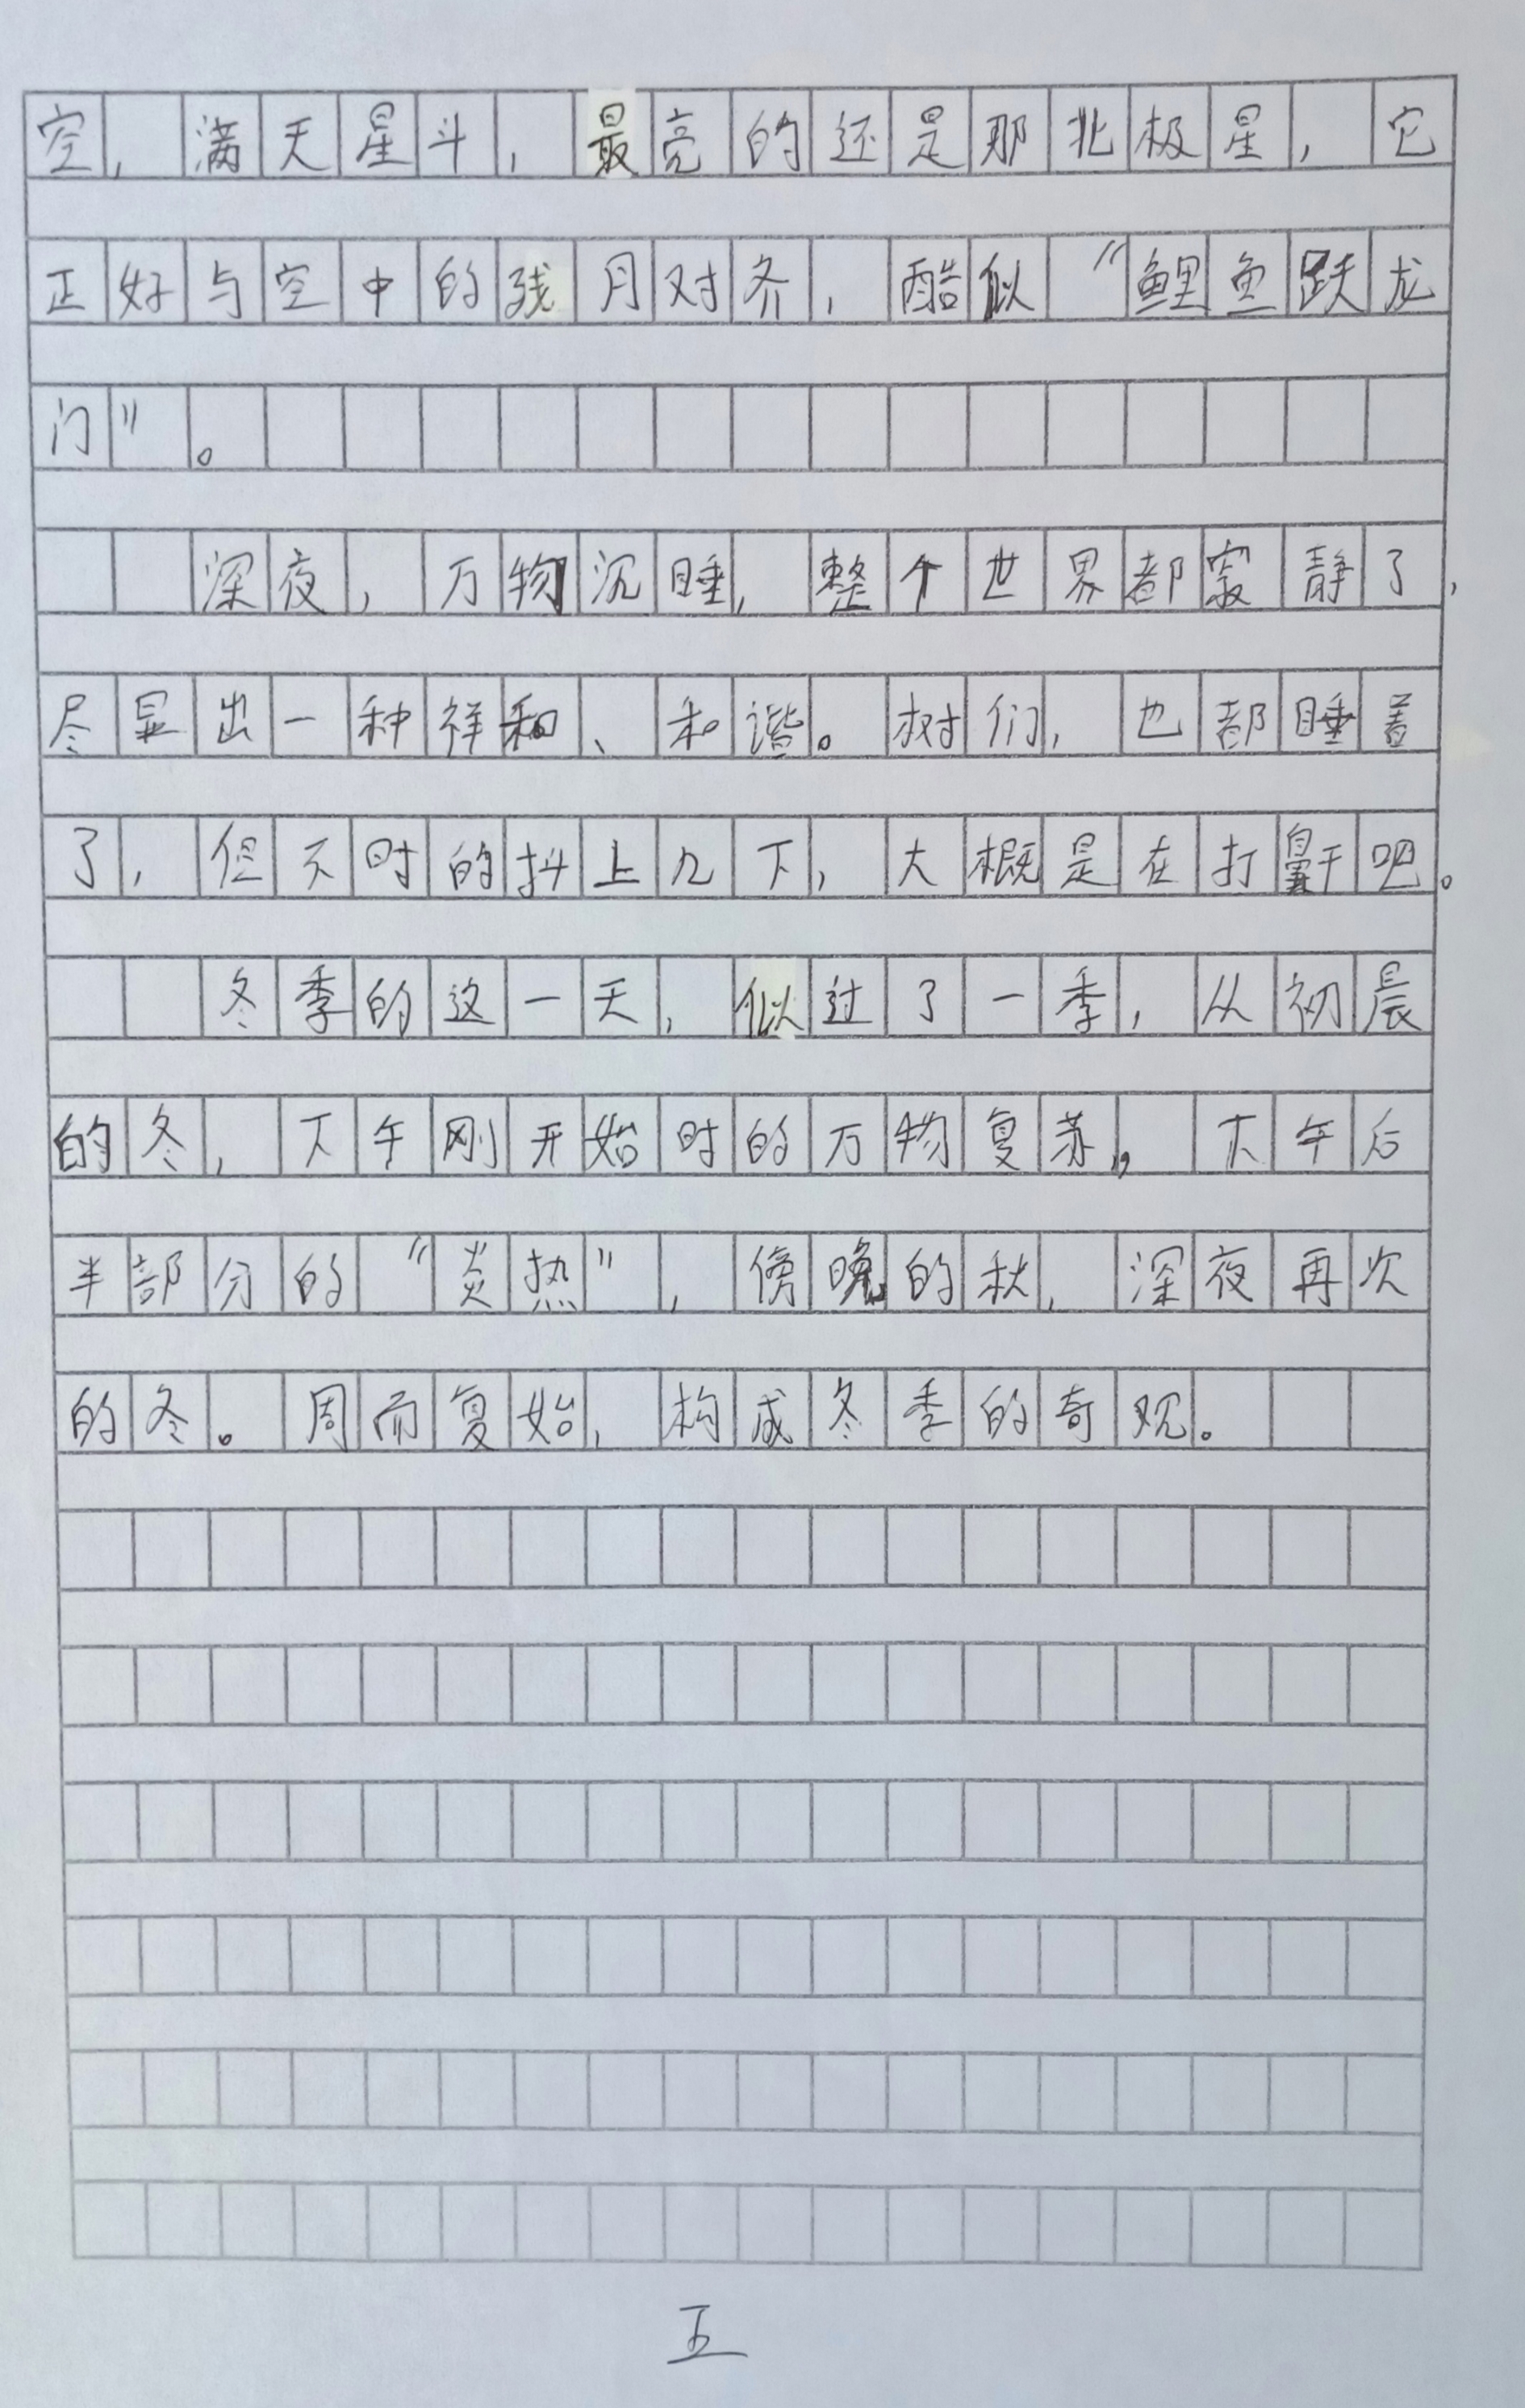 空，满天星斗，最亮的还是那北极星，它
正好与空中的残月对齐，酷似“鲤鱼跃龙
门”。
深夜，万物沉睡，整个世界都寂静了，
尽显出一种祥和、和谐。树们，也都睡着
了，但不时的抖上几下，大概是在打鼾吧。
冬季的这一天，似过了一季，从初晨
的冬，下午刚开始时的万物复苏，下午后
半部分的“炎热”，傍晚的秋，深夜再次
的冬。周而复始，构成冬季的奇观。
五